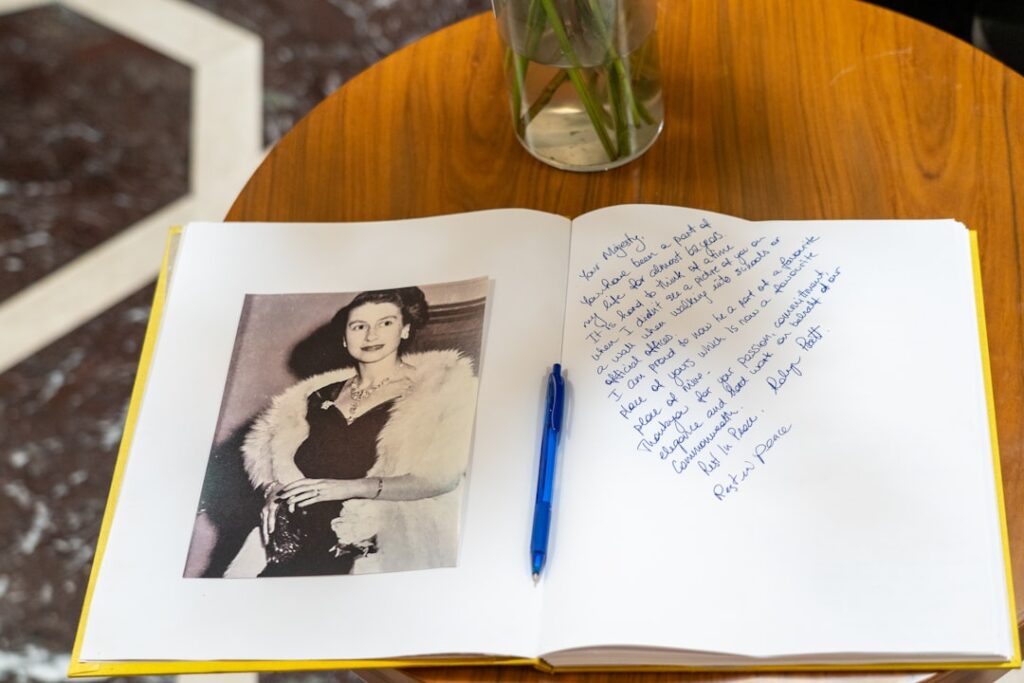 Your Majesty,
You have been a part of
my life for almost years
It is hard to think of a time
when I didn't see a picture of you on
a wall when walking into schools or
official offices
I am proud to now be a part of a favourite
place of yours which is now a favourite
place of mine.
Thankyou for your passion, commitment,
elegance and hard work on behalf of our
Commonwealth.
Rest In Peace. Pratt
Rest in Peace